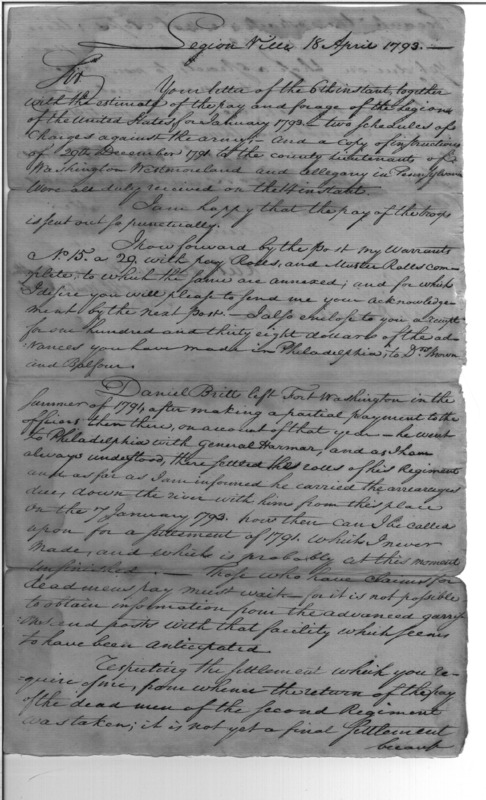 Legion Ville 18 April 1793.—
Sir
Your letter of the 6th instant, together
with the estimate of the pay and forage of the Legion
of the United States for January 1793 – two schedules of
Charges against the army, – and a copy of instructions
of 29th December 1791 to the county lieutenants of
Washington Westmoreland and Allegany in Pennsylvania
were all duly received on the 14 instant.
I am happy that the pay of the troops
is sent out so punctually.
I now forward by the post my Warrants
No. 15. a 29 with pay Rolls, and Muster Rolls com-
plete, to which the same are annexed; and for which
I desire you will please to send me your acknowledge-
ment by the next post. – I also enclose to you a receipt
for one hundred and thirty eight dollars of the ad-
vances you have made in Philadelphia, to Drs. Brown
and Balfour.
Daniel Britt left Fort Washington in the
summer of 1791, after making a partial payment to the
officers then there, on account of that year – he went
to Philadelphia with General Harmar, and as I have
always understood, there settled the rolls of his Regiment
and as far as I am informed he carried the arrearages
due, down the river with him from this place
on the 7 January 1793. how then can I be called
upon for a settlement of 1791. which I never
made, and which is probably at this moment
unfinished. – Those who have claims for
dead mens pay must wait – for it is not possible
to obtain information from the advanced garri-
sons and posts with that facility which seems
to have been anticipated.
Respecting the settlement which you re-
-quire of me, from whence the return of the pay
of the dead men of the second Regiment
was taken; it is not yet a final settlement